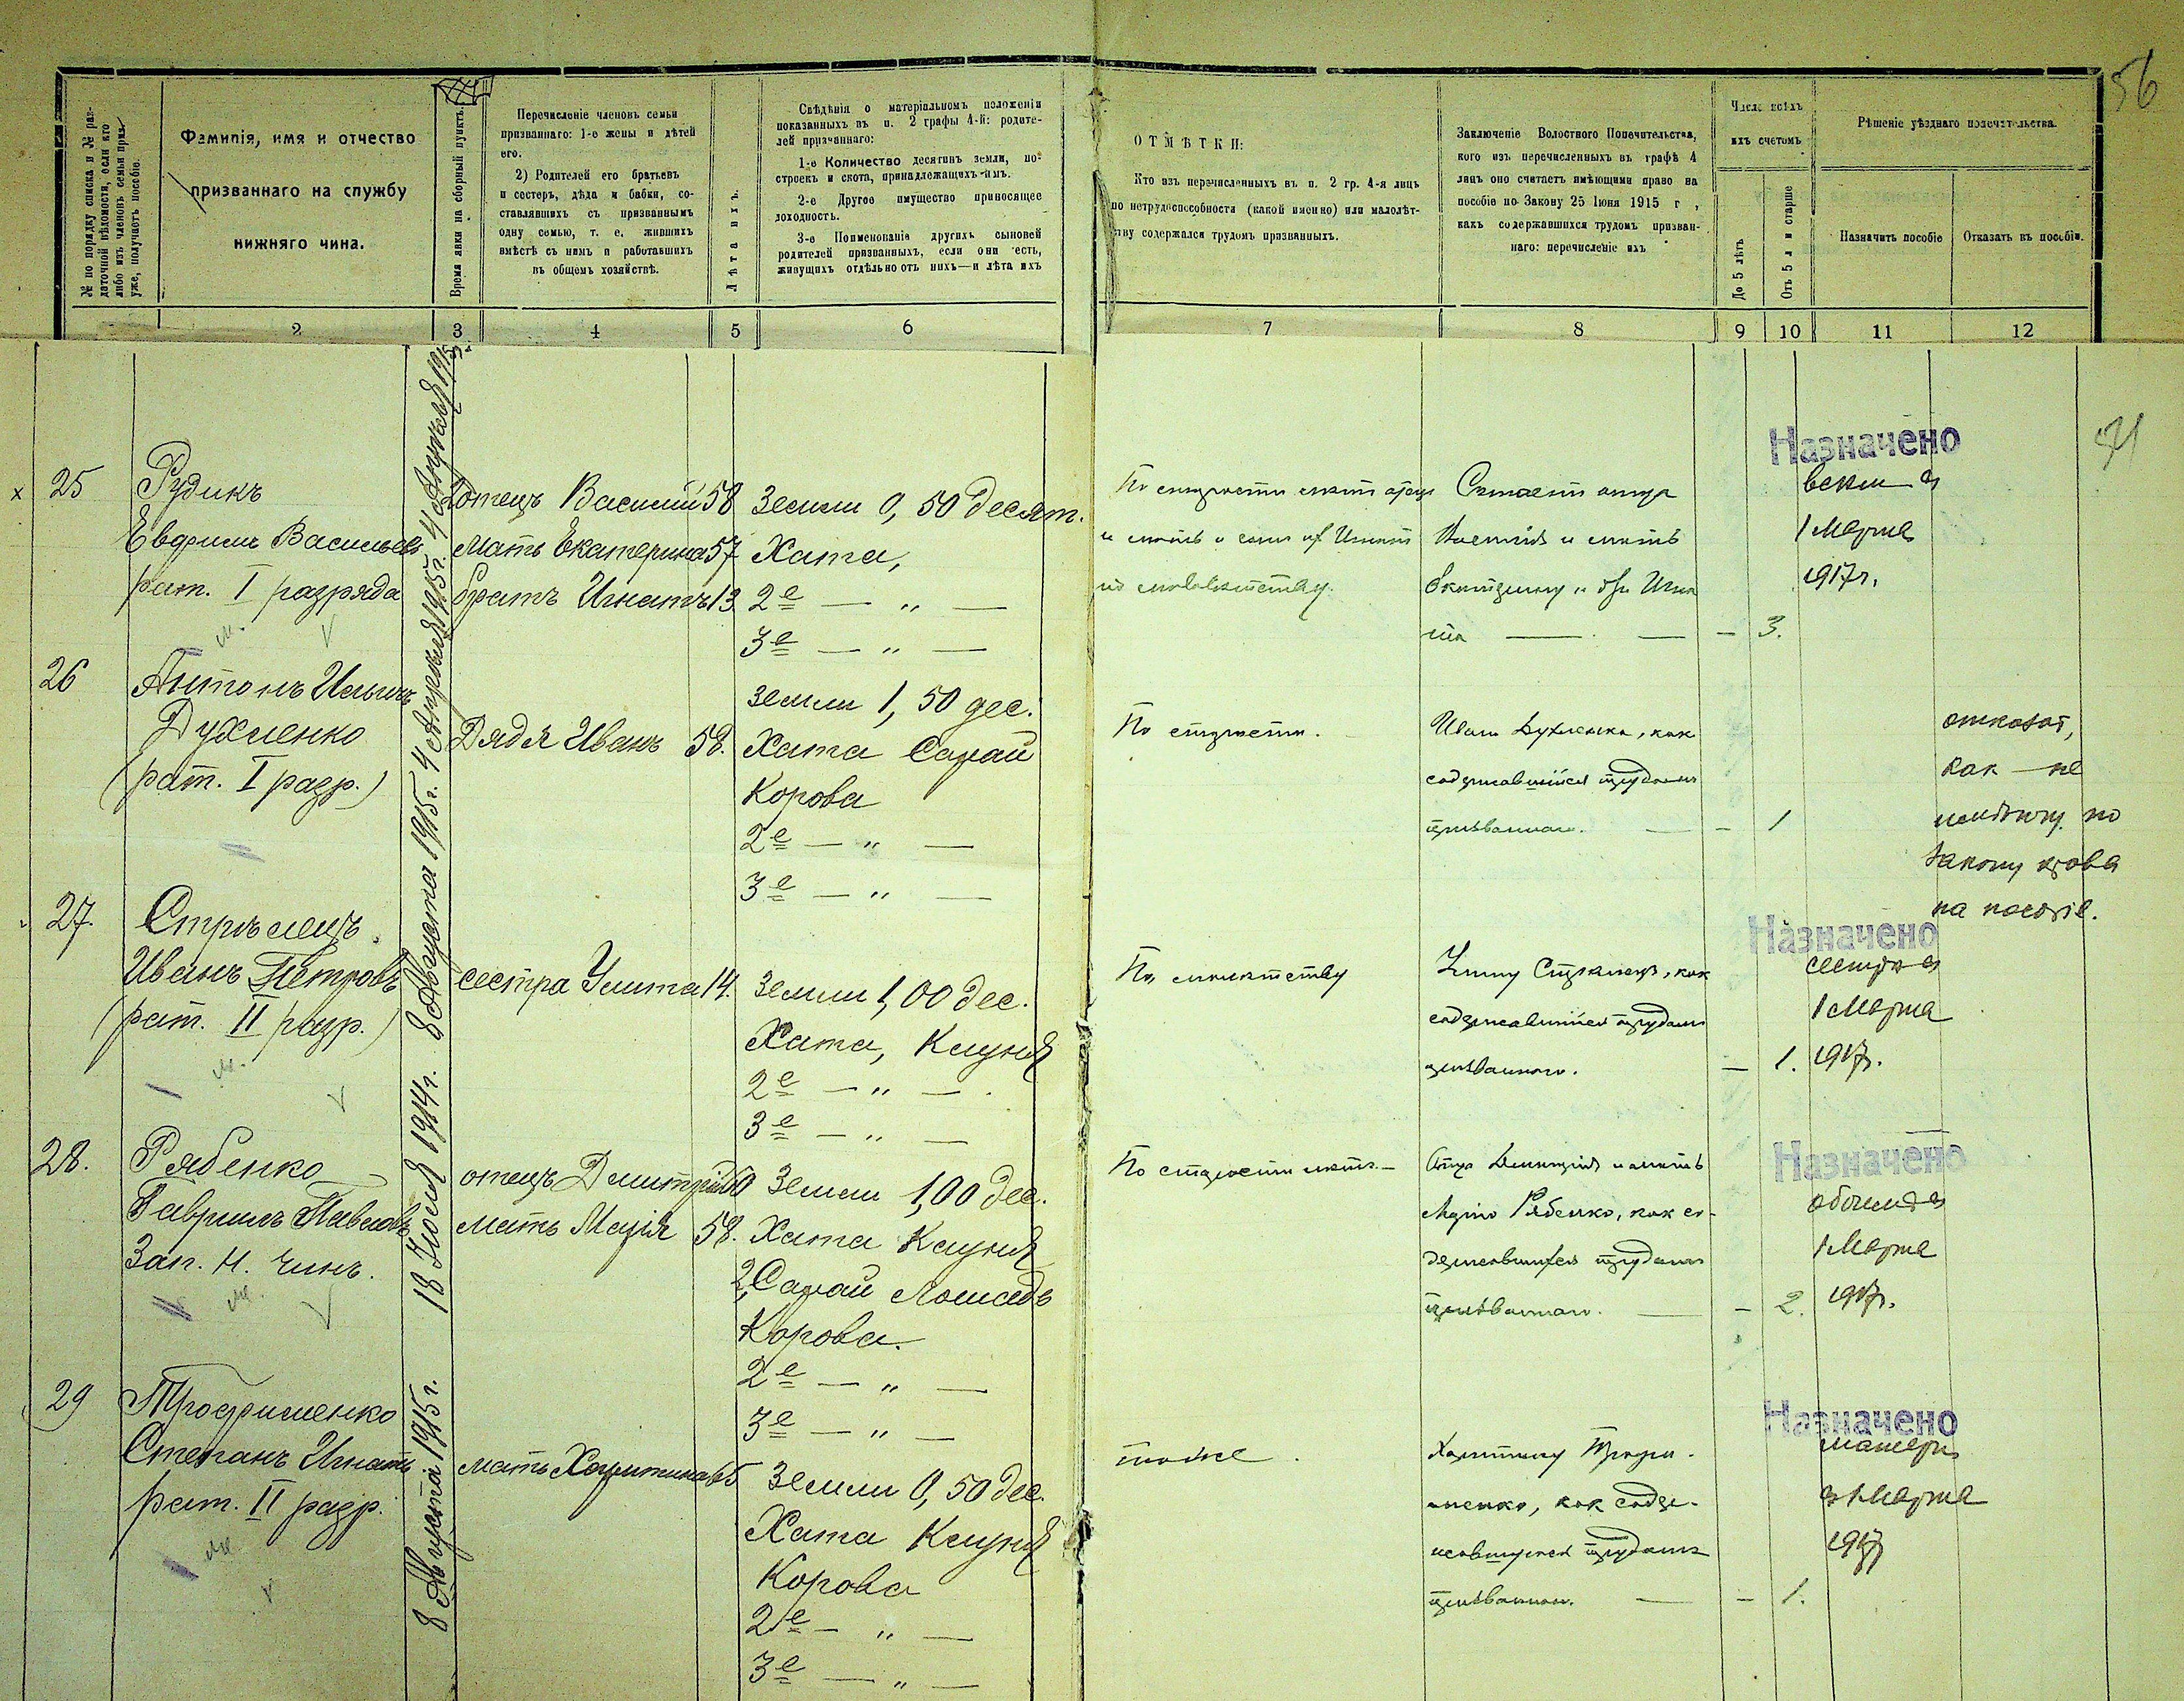 56
№ по порядку списка и № раз-
даточной вѣдомости, если кто
либо изъ членовъ семьи приз.
уже, получаетъ пособіе.
Фамилія, имя и отчество
призваннаго на службу
нижняго чина.
Время явки на сборный пунктъ.
Перечисленіе членовъ семьи
призваннаго: 1-е жены и дѣтей
его.
2) Родителей его братьевъ
и сестеръ, дѣда и бабки, со-
ставлявшихъ съ призваннымъ
одну семью, т. е. жившихъ
вмѣстѣ съ нимъ и работавшихъ
въ общемъ хозяйствѣ.
Лѣта ихъ.
Свѣдѣнія о матеріальномъ положеніи
показанныхъ въ п. 2 графы 4-й: родите-
лей призваннаго:
1-е Количество десятинъ земли, по-
строекъ и скота, принадлежащихъ имъ.
2-е Другое имущество приносящее
доходность.
3-е Поименованіе другихъ сыновей
родителей призванныхъ, если они есть,
живущихъ отдѣльно отъ нихъ—и лѣта ихъ
ОТМѢТКИ:
Кто изъ перечисленныхъ въ п. 2 гр. 4-я лицъ
по нетрудоспособности (какой именно) или малолѣт-
тву содержался трудомъ призванныхъ.
Заключеніе Волостного Попечительства,
кого изъ перечисленныхъ въ графѣ 4
лицъ оно считаетъ имѣющими право на
пособіе по Закону 25 Іюня 1915 г.,
какъ содержавшихся трудомъ призван-
наго: перечисленіе ихъ
Число всѣхъ
ихъ счетомъ
До 5 лѣтъ
Отъ 5 л и старше
Рѣшеніе уѣзднаго попечительства.
Назначить пособіе
Отказать въ пособіи.
2 3 4 5 6 7 8 9 10 11 12
х 25
Рудикъ
Евфимъ Васильевъ
рат. I разряда
4 Апрѣля 1915 г.
отецъ Василий 58
Мать Екатерина 57
братъ Игнатъ 13
Земли 0,50 десят.
Хата,
2е — „ —
3е — „ —
По старости лѣтъ отецъ
по малолѣтству.
Считаетъ отца
Василія и мать
Екатерину и бр. Игна
та — — — 3.
Назначено
всѣмъ съ
1 Марта
1917 г.
26
Антонъ Ильинъ
Духменко
(рат. I разр.)
4 Апрѣля 1915 г.
Дядя Иванъ 58.
Земли 1,50 дес.
Хата Сарай
Корова
2е — „ —
3е — „ —
По старости.
Ивана Духменка, какъ
содержавшійся трудомъ
призваннаго. — — 1
отказать,
как — не
имѣющ. по
закону права
на пособіе.
27.
Стрѣлецъ
Иванъ Петровъ
(рат. II разр.)
8 Августа 1915 г.
сестра Улита 14.
Земли 1,00 дес.
Хата, Клуня
2е — „ — .
3е — „ —
По малолѣтству
Улиту Стрѣлецъ, какъ
содержавшійся трудомъ
призваннаго. — 1.
Назначено
сестрѣ съ
1 Марта
1917 г.
28.
Рябенко
Гаврилъ Павловъ
Зап. Н. Чинъ.
18 Іюля 1914 г.
отецъ Дмитрій 60
мать Марія 58.
Земли 1,00 дес.
Хата Клуня
2, Сарай Лошадь
Корова.
2е — „ —
3е — „ —
По старости лѣтъ.—
Отца Дмитрія и мать
Марію Рябенко, какъ со-
державшихся трудомъ
призваннаго. — — 2.
Назначено
обоимъ съ
1 Марта
1917 г.
29
Трофименко
Степанъ Игнатъ
рат. II разр.
8 Августа 1915 г.
мать Харитина 65
Земли 0,50 дес.
Хата Клуня
Корова
2е — „ —
3е — „ —
тоже.
Харитину Трофи-
менко, какъ содер-
жавшуюся трудомъ
призваннаго. — — 1.
Назначено
матери
съ 1 Марта
1917